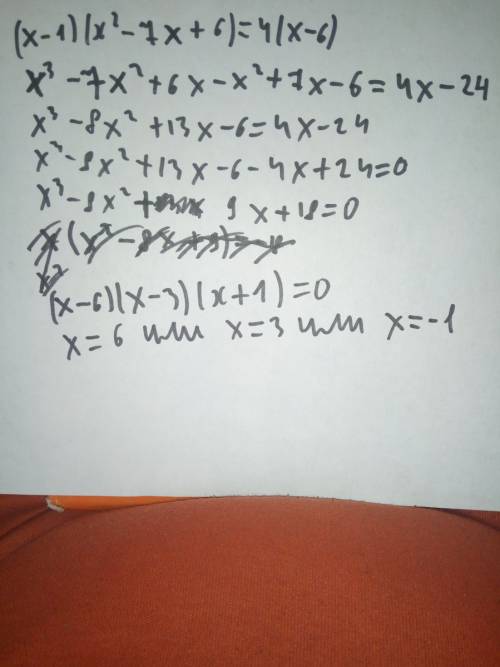 (x-1)(x²-7x+6)=4(x-6)
x³-7x²+6x-x²+7x-6=4x-24
x³-8x²+13x-6=4x-24
x³-8x²+13x-6-4x+24=0
x³-8x²+9x+18=0
(x-6)(x-3)(x+1)=0
x=6 или x=3 или x=-1